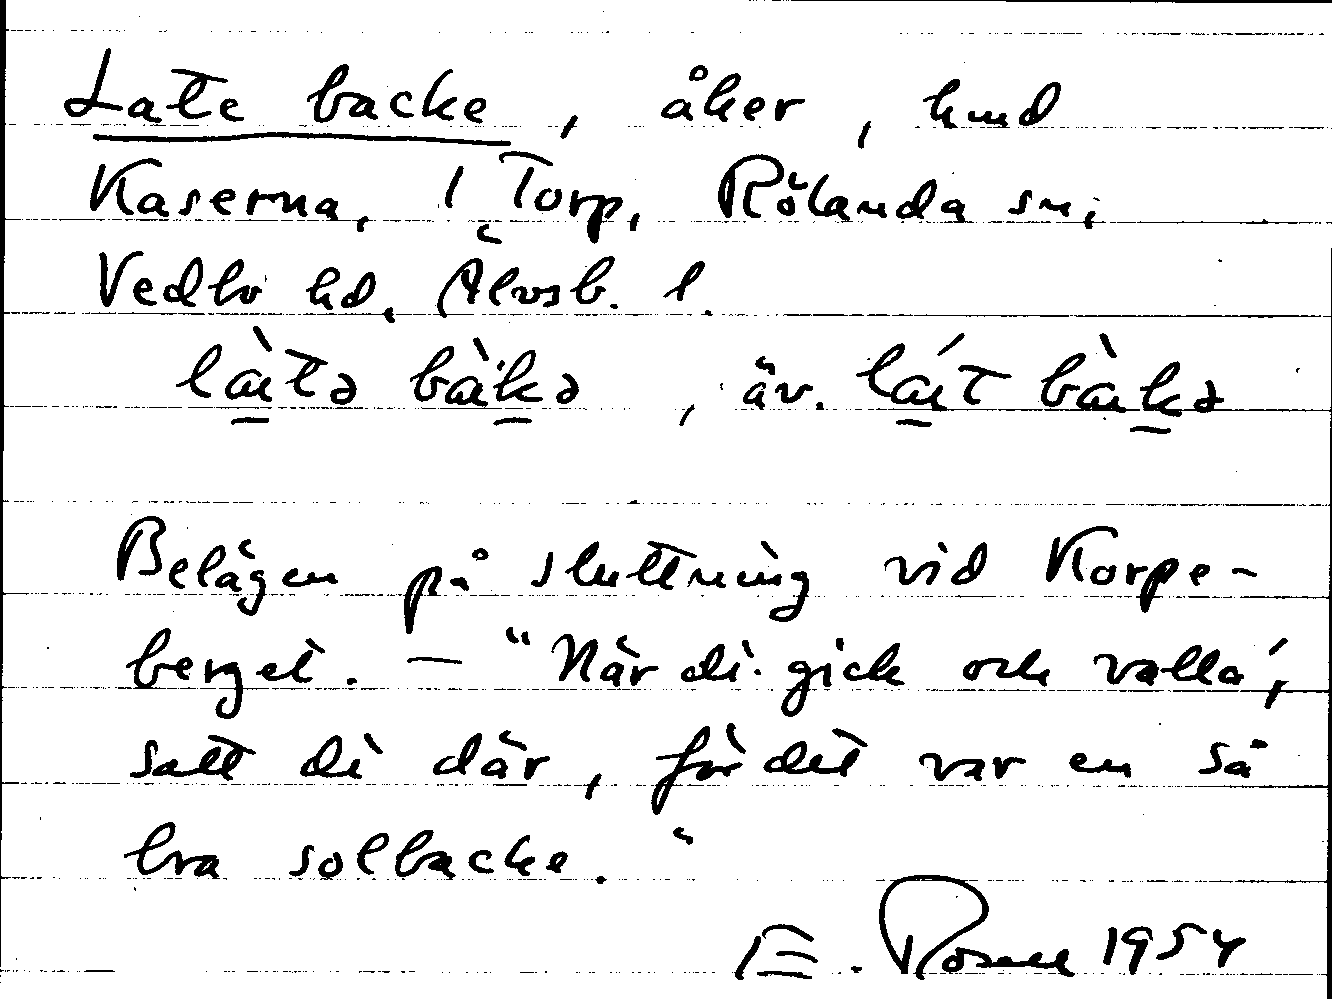 Late backe, åker, hmd
Kaserna, 1 Torp, Rölanda sn,
Vedbo hd, Älvsb. l.
là̱tə bàḵə, äv. lá̱t bàḵə
Belägen på sluttning vid Korpe-
berget. — "När di gick och valla',
satt di där, för det var en så
bra solbacke."
E. Rosell 1954